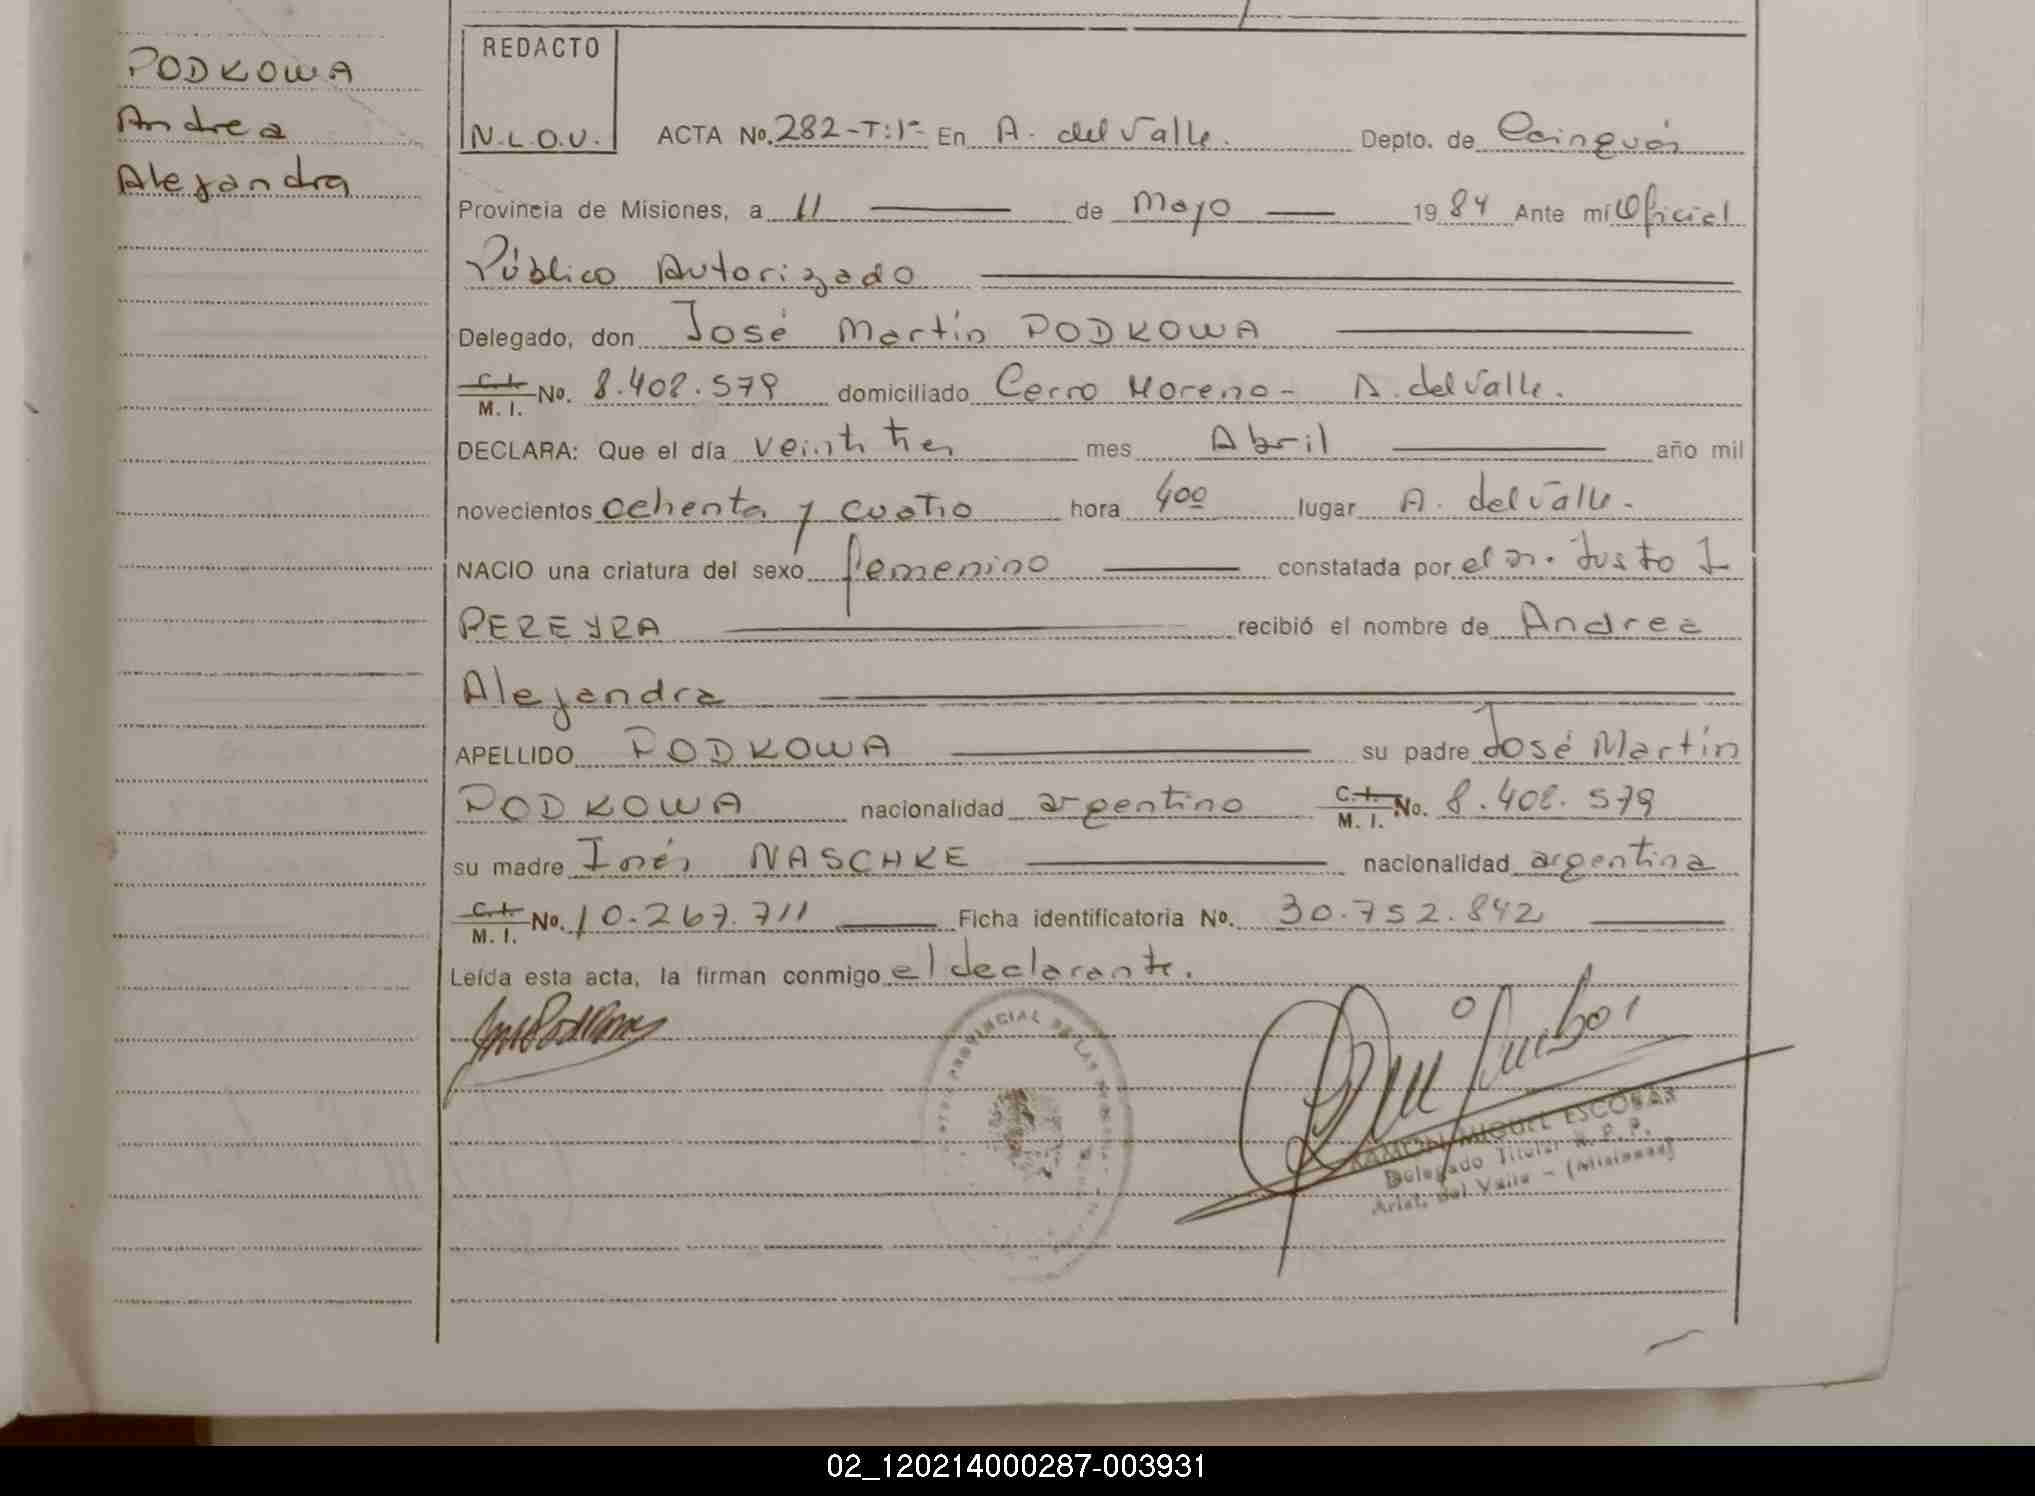 PODKOWA
Andrea
Alejandra
REDACTO
N.L.O.V.
ACTA No. 282-T:1º- En A. del Valle. Depto. de Cainguás
Provincia de Misiones, a 11 de Mayo 1984 Ante mí Oficial
Público Autorizado
Delegado, don José Martín PODKOWA
C.I. M.I. No. 8.408.579 domiciliado Cerro Moreno - A. del Valle.
DECLARA: Que el día veintitres mes Abril año mil
novecientos ochenta y cuatro hora 400 lugar A. del Valle.
NACIO una criatura del sexo femenino constatada por el sr. Justo I
PEREYRA recibió el nombre de Andrea
Alejandra
APELLIDO PODKOWA su padre José Martín
PODKOWA nacionalidad argentino C.I. M.I. No. 8.408.579
su madre Inés NASCHKE nacionalidad argentina
C.I. M.I. No. 10.267.711 Ficha identificatoria No. 30.752.842
Leída esta acta, la firman conmigo el declarante.
PROVINCIAL DE LAS
RAMON MIGUEL ESCOBAR
Delegado Titular R.P.P.
Arist. del Valle - (Misiones)
02_120214000287-003931